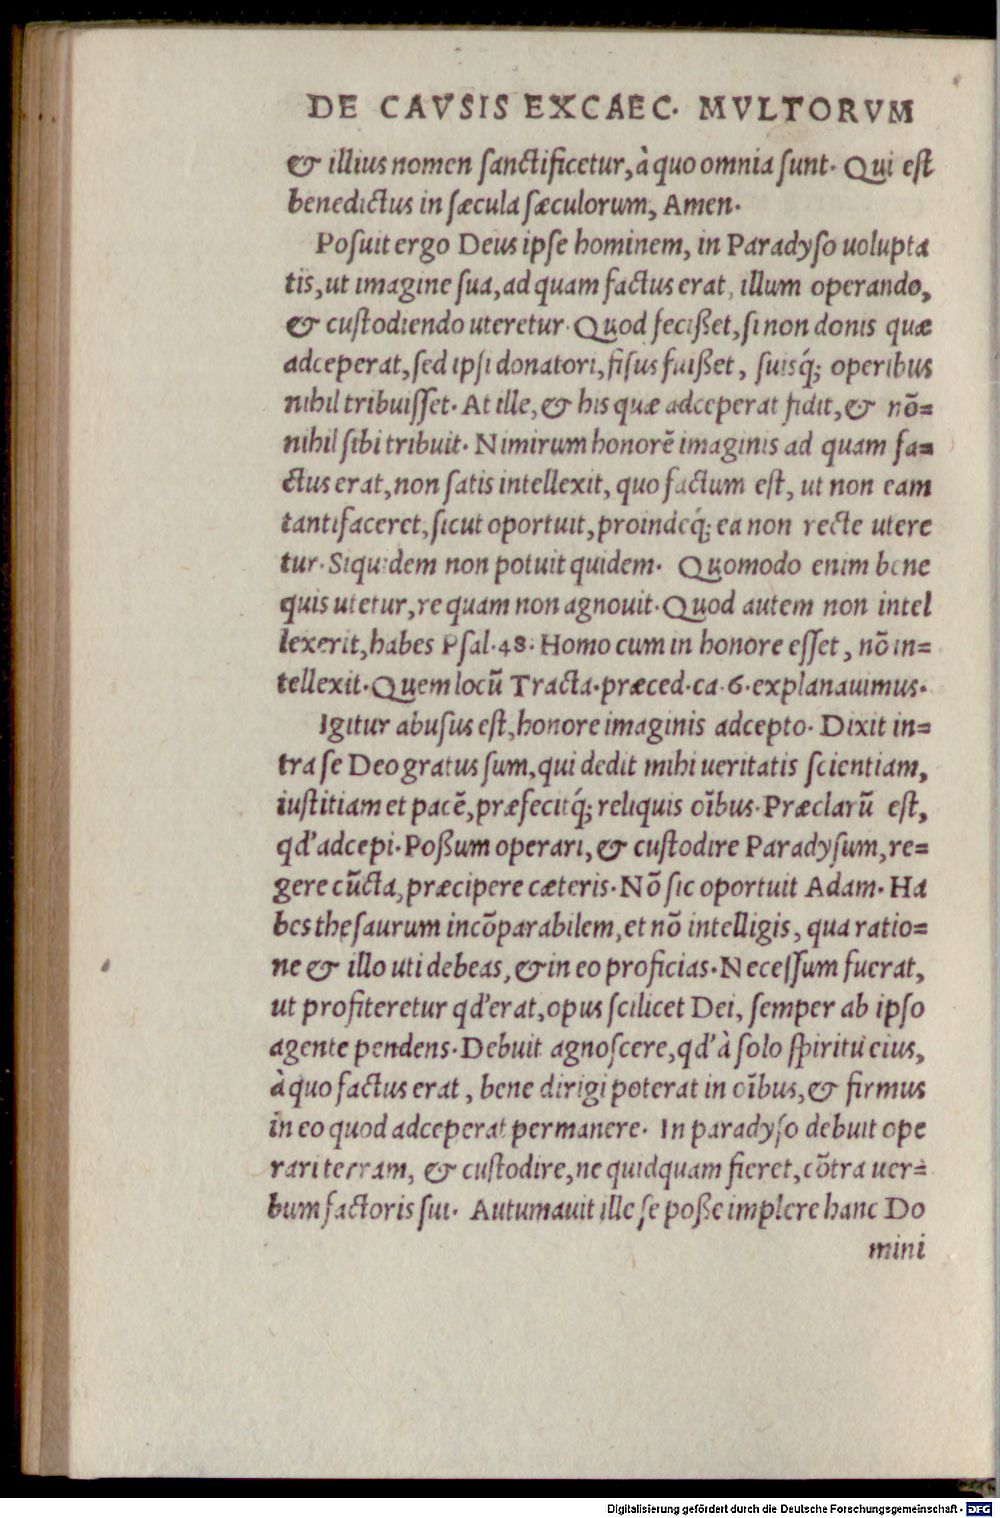 DE CAVSIS EXCAEC. MVLTORVM
& illius nomen ſanctificetur, à quo omnia ſunt. Qui eſt
benedictus in ſæcula ſæculorum, Amen.
Poſuit ergo Deus ipſe hominem, in Paradyſo uolupta
tis, ut imagine ſua, ad quam factus erat, illum operando,
& cuſtodiendo uteretur. Quod fecißet, ſi non donis quæ
adceperat, ſed ipſi donatori, fiſus fuißet, suisq́; operibus
nihil tribuiſſet. At ille, & his quæ adceperat fidit, & nō=
nihil ſibi tribuit. Nimirum honorē imaginis ad quam fa=
ctus erat, non ſatis intellexit, quo factum eſt, ut non eam
tantifaceret, ſicut oportuit, proindeq́; ea non recte utere
tur. Siquidem non potuit quidem. Quomodo enim bene
quis utetur, re quam non agnouit. Quod autem non intel
lexerit, habes Pſal. 48. Homo cum in honore eſſet, nō in=
tellexit. Quem locū Tracta. præced. ca. 6. explanauimus.
Igitur abuſus eſt, honore imaginis adcepto. Dixit in=
tra ſe Deo gratus ſum, qui dedit mihi ueritatis ſcientiam,
iuſtitiam et pacē, præfecitq́; reliquis oībus. Præclarū eſt,
qd' adcepi. Poßum operari, & cuſtodire Paradyſum, re=
gere cūcta, præcipere cæteris. Nō ſic oportuit Adam. Ha
bes theſaurum incōparabilem, et nō intelligis, qua ratio=
ne & illo uti debeas, & in eo proficias. Neceſſum fuerat,
ut profiteretur qd' erat, opus ſcilicet Dei, ſemper ab ipſo
agente pendens. Debuit agnoſcere, qd' à ſolo ſpiritu eius,
à quo factus erat, bene dirigi poterat in oībus, & firmus
in eo quod adceperat permanere. In paradyſo debuit ope
rari terram, & cuſtodire, ne quidquam fieret, cōtra uer=
bum factoris ſui. Autumauit ille ſe poße implere hanc Do
mini
Digitalisierung gefördert durch die Deutsche Forschungsgemeinschaft - DFG